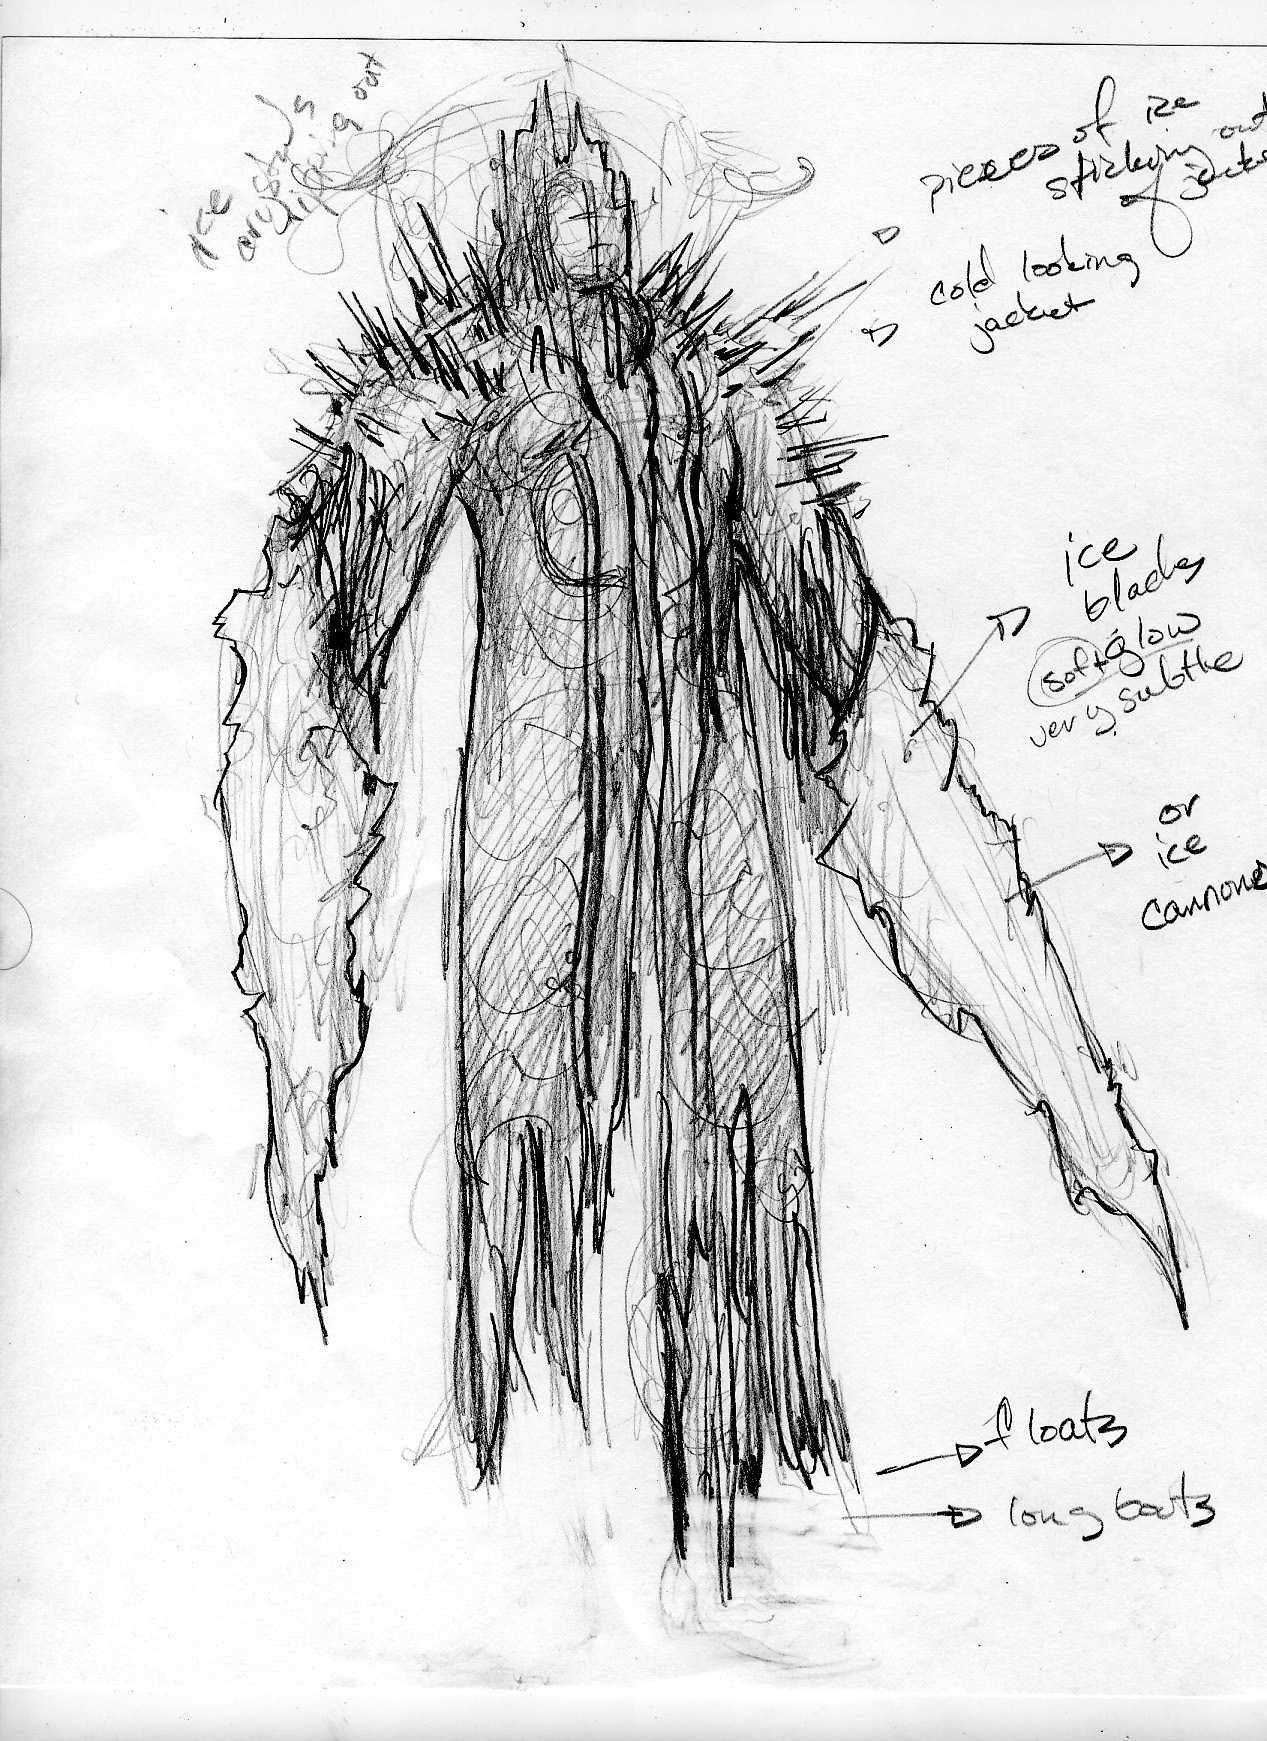 ice
crystals
sticking out
pieces of ice
sticking out
of jacket
cold looking
jacket
ice
blades
soft glow
very subtle
or
ice
cannone
floats
long boots